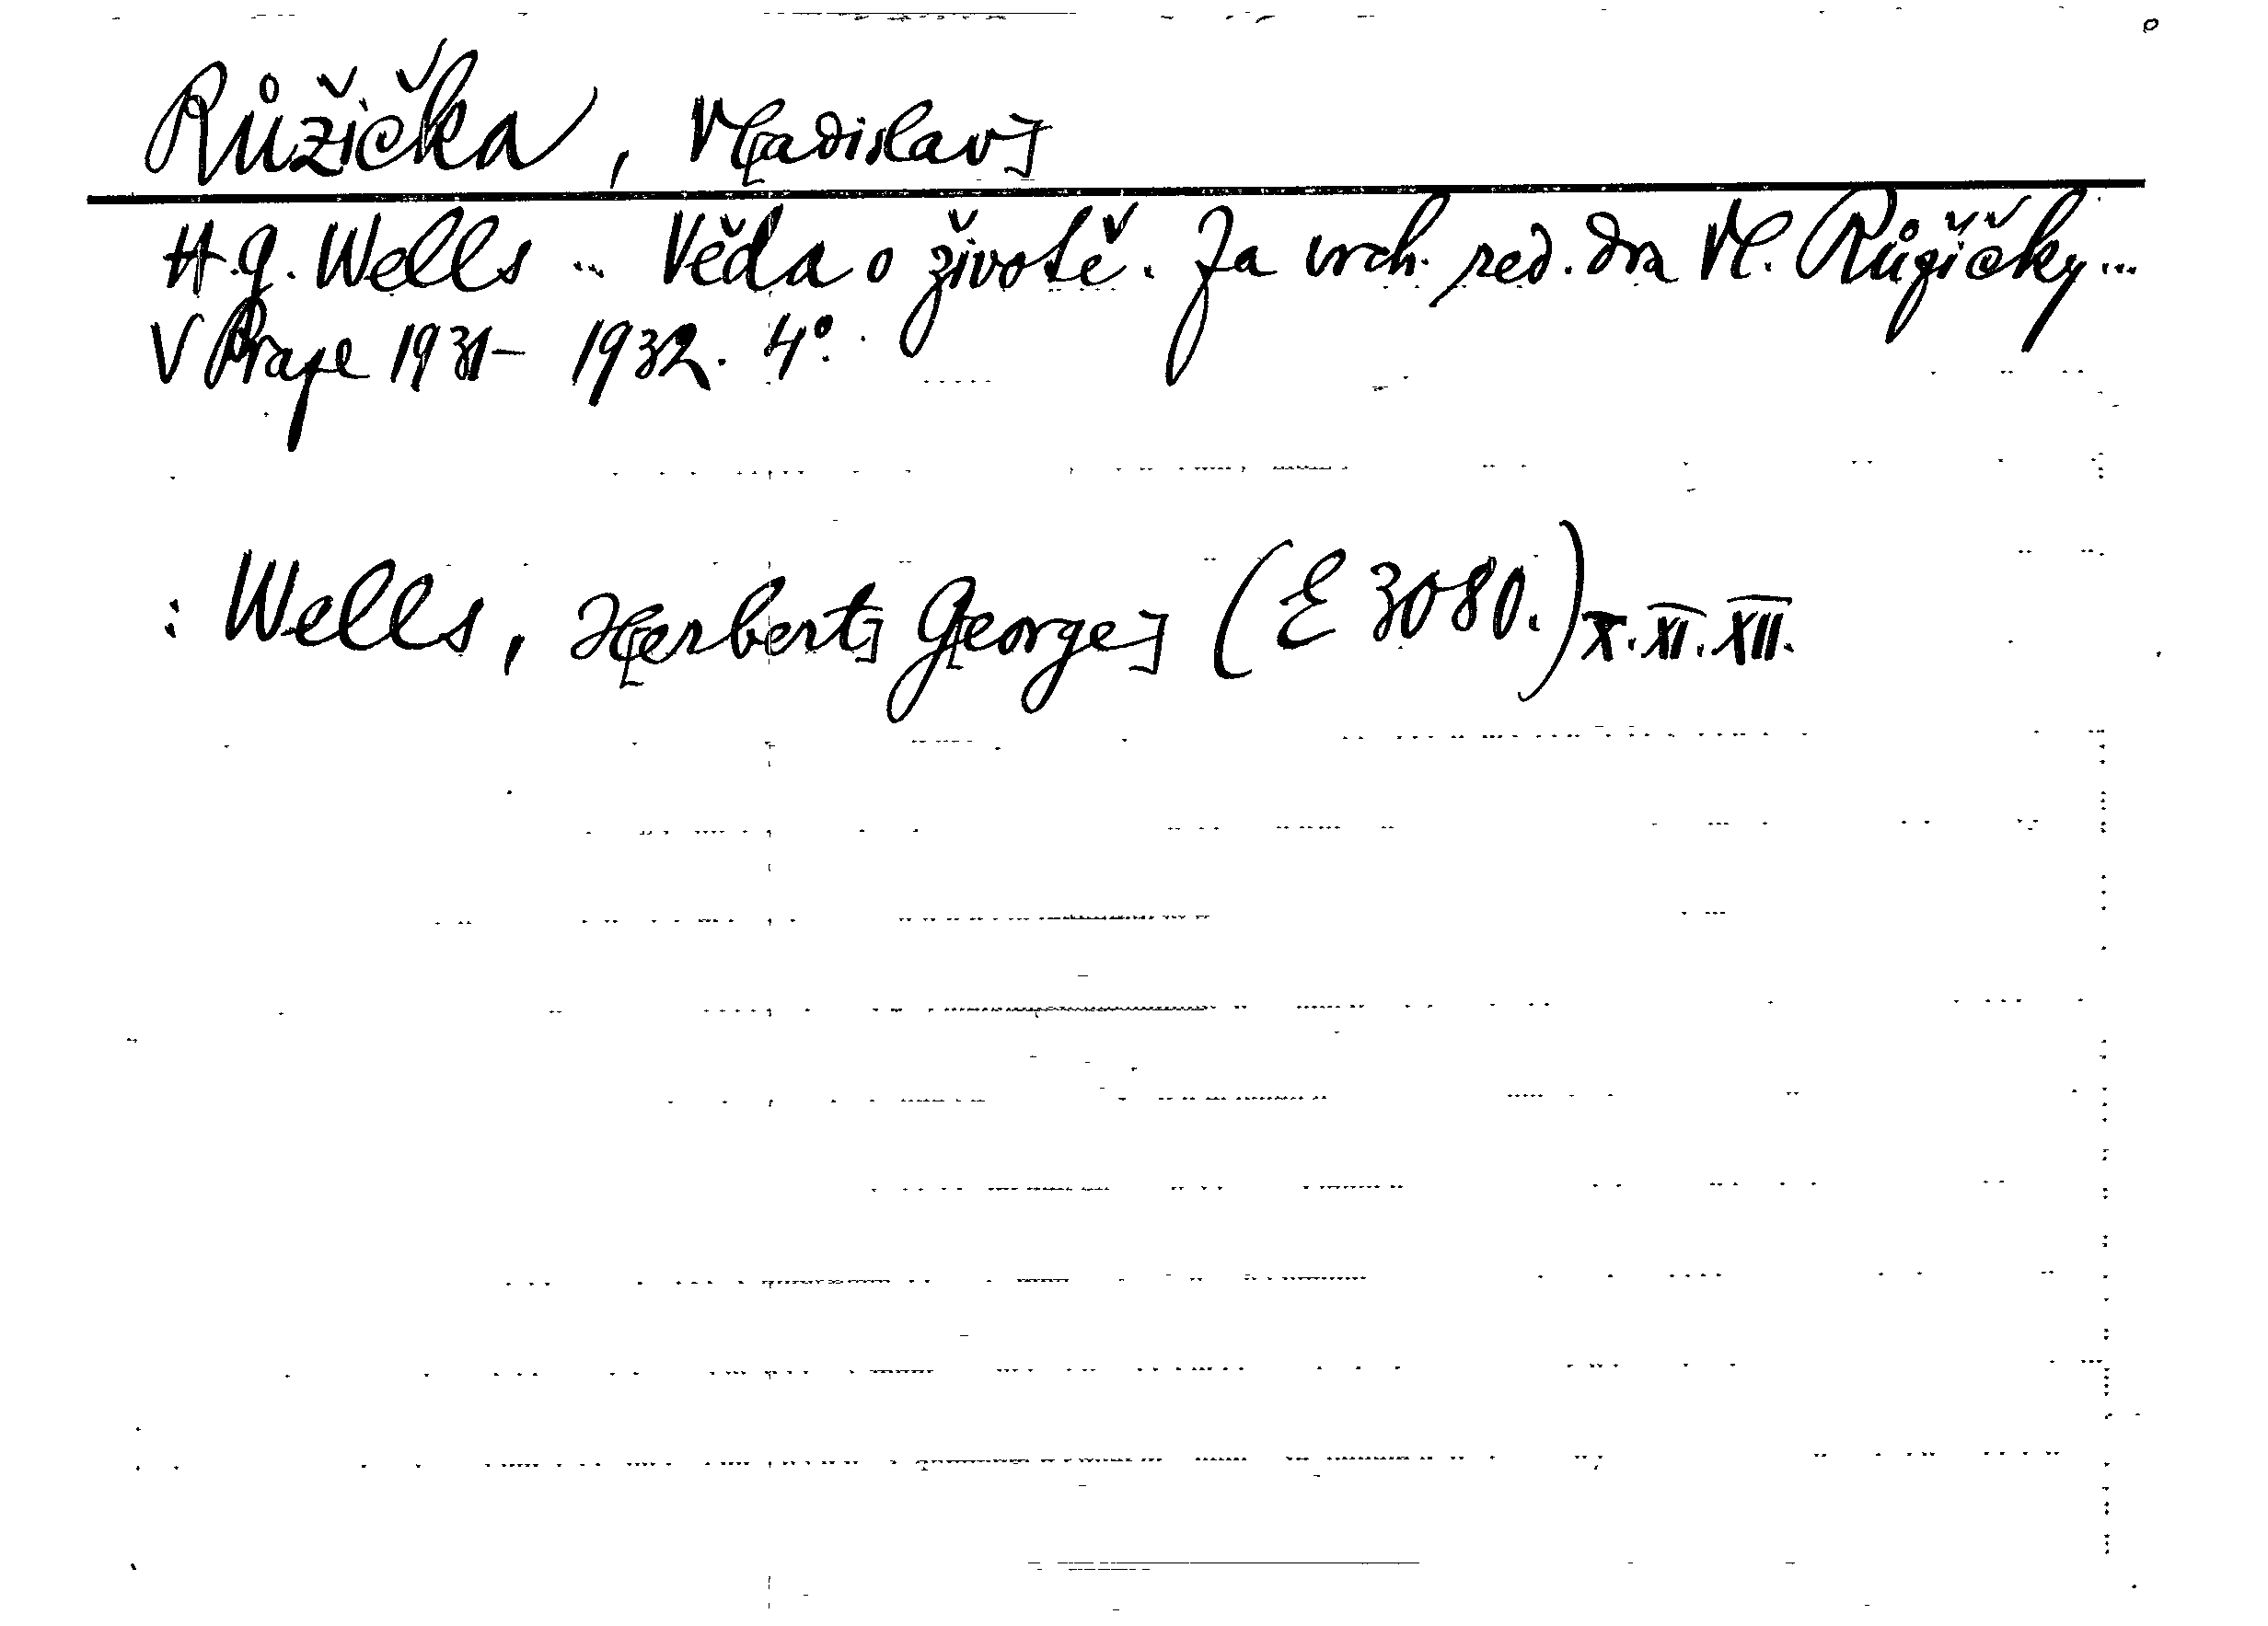 Růžička, Vl[adislav]
H.G. Wells ... Věda o životě. Za vrch. red. dra Vl. Růžičky...
V Praze 1931-1932. 4°.
: Wells, H[erbert] G[eorge] (E 3080.) X. XI. XII.